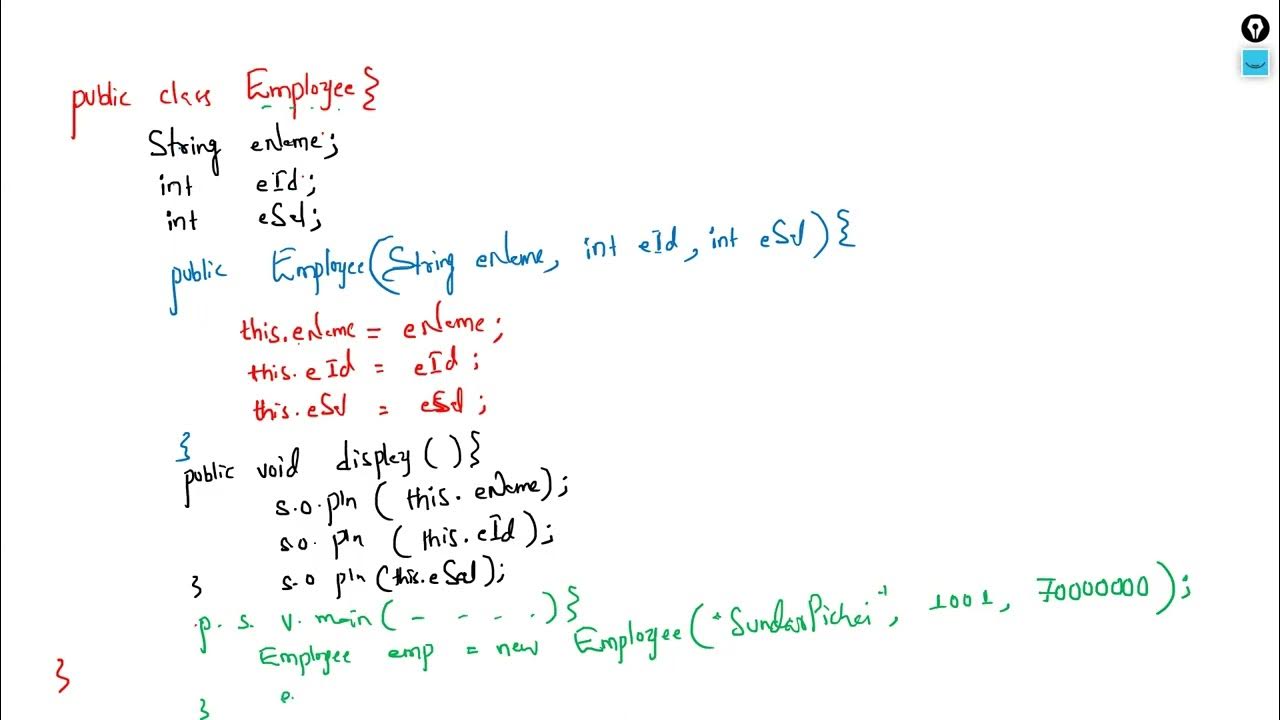 public class Employee{
String eName;
int eId;
int eSal;
public Employee(String eName, int eId, int eSal){
this.eName = eName;
this.eId = eId;
this.eSal = eSal;
}
public void display(){
s.o.pln(this.eName);
s.o.pln(this.eId);
} s.o pln(this.eSal);
p. s. v. main(- - - -){
Employee emp = new Employee("SundarPichai", 1001, 70000000);
}
} e.